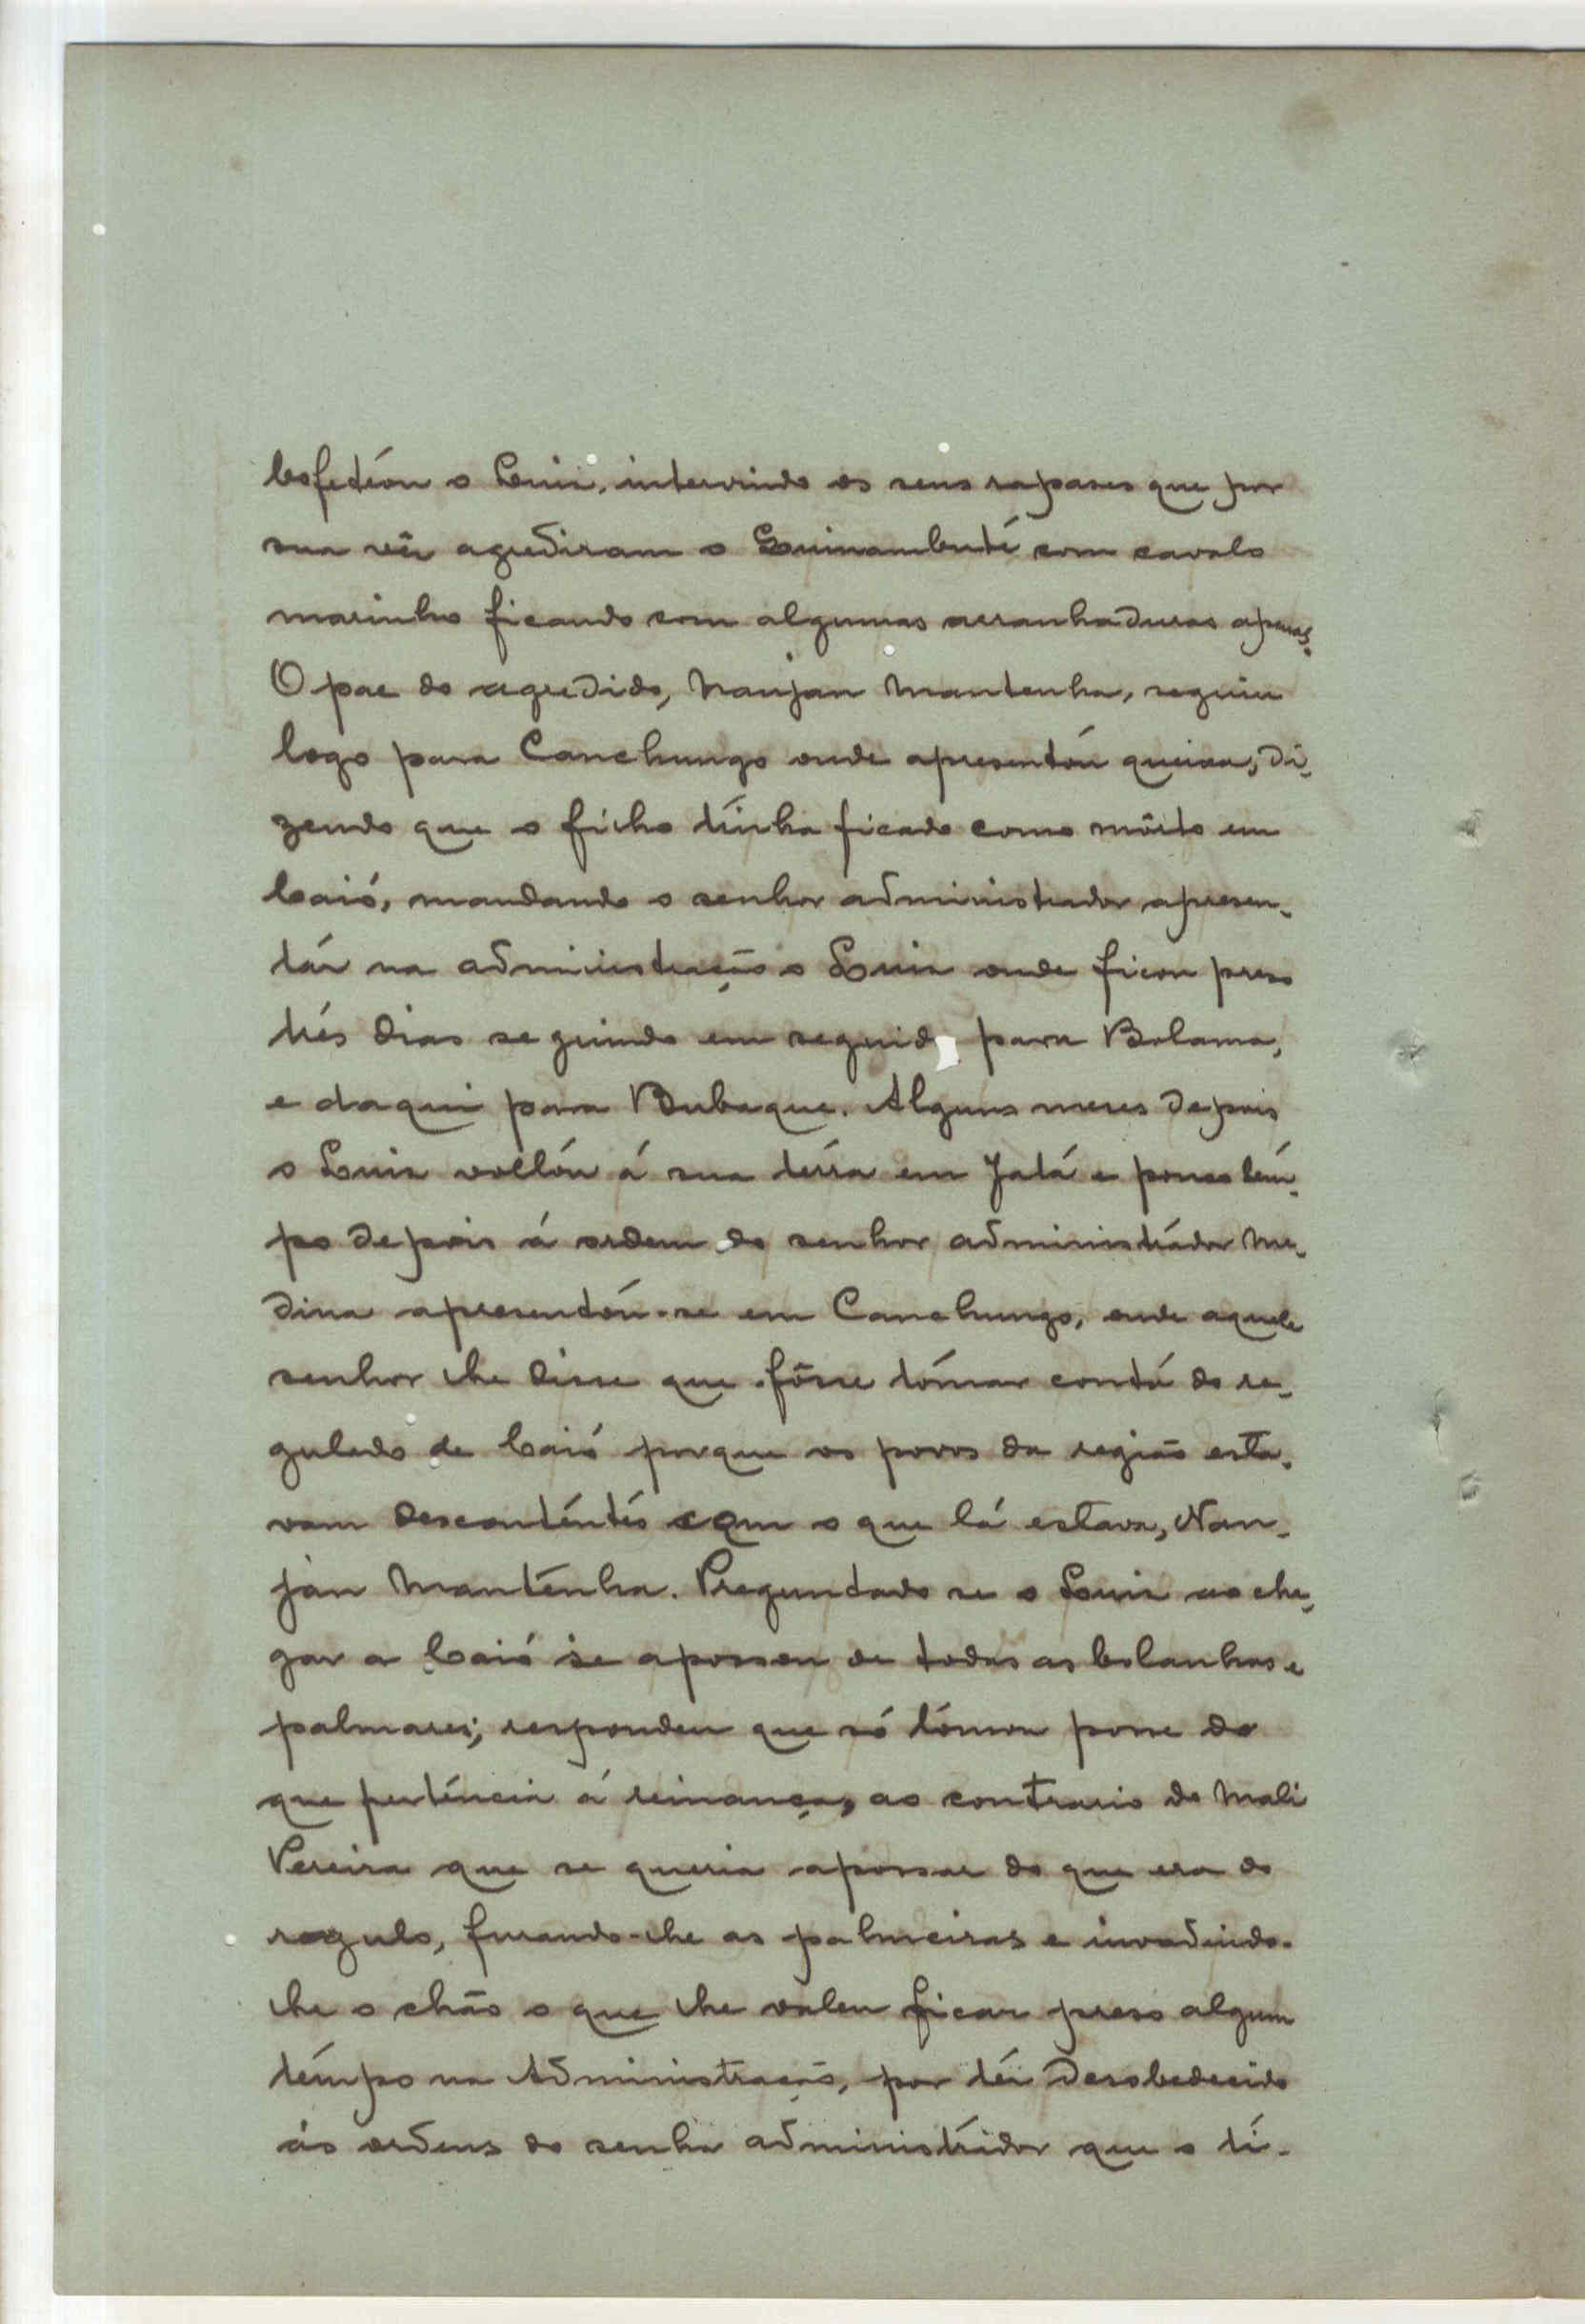 bofetéou o Luis, intervindo os seus rapases que por
sua vês agrediram o Quinambuté com cavalo
marinho ficando com algumas arranhaduras apenas.
O pae do agredido, Nanjan Mantenha, seguiu
logo para Canchungo onde apresentóu queixa, di-
zendo que o filho tinha ficado como môrto em
Caió, mandando o senhor administrador apresen-
tár na administração o Luis onde ficou preso
três dias seguindo em seguid para Bolama,
e daqui para Bubaque. Alguns meses depois
o Luis voltóu á sua térra em Jatá e pouco tém-
po depois á ordem do senhor administrádor Me-
dina apresentóu-se em Canchungo, onde aquele
senhor lhe disse que fôsse tómar contá do re-
gulado de Caió porque os povos da região esta-
vam desconténtés com o que lá estava, Nan-
jan Mantenha. Preguntado se o Luis ao che-
gar a Caió se apossou de todas as bolanhas e
palmares; respondeu que só tómou posse do
que perténcia á reinança, ao contrario do Mali
Pereira que se queria apossar do que era do
regulo, furando-lhe as palmeiras e invadindo-
lhe o chão o que lhe valeu ficar preso algum
témpo na Administração, por tér desobedecido
ás ordens do senhor administrádor que o tí-